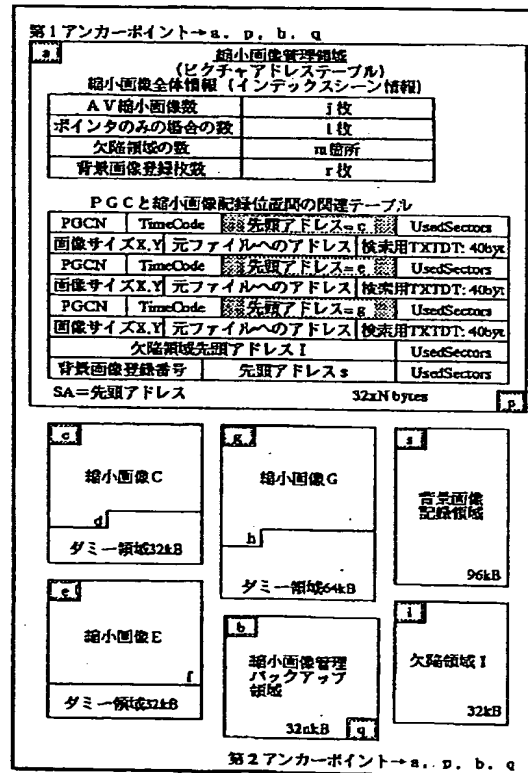 第1アンカーポイント→a, p, b, q
a
縮小画像管理領域
(ピクチャアドレステーブル)
縮小画像全体情報 (インデックスシーン情報)
AV縮小画像数 j枚
ポインタのみの場合の数 l枚
欠陥領域の数 m箇所
背景画像登録枚数 r枚
PGCと縮小画像記録位置間の関連テーブル
PGCN TimeCode 先頭アドレス=c UsedSectors
画像サイズX,Y 元ファイルへのアドレス 検索用TXTDT: 40byt
PGCN TimeCode 先頭アドレス=e UsedSectors
画像サイズX,Y 元ファイルへのアドレス 検索用TXTDT: 40byt
PGCN TimeCode 先頭アドレス=g UsedSectors
画像サイズX,Y 元ファイルへのアドレス 検索用TXTDT: 40byt
欠陥領域先頭アドレスI UsedSectors
背景画像登録番号 先頭アドレスs UsedSectors
SA=先頭アドレス 32xN bytes
p
c
縮小画像C
d
ダミー領域32kB
g
縮小画像G
h
ダミー領域64kB
s
背景画像
記録領域
96kB
e
縮小画像E
f
ダミー領域32kB
b
縮小画像管理
バックアップ
領域
32nkB
q
i
欠陥領域I
32kB
第2アンカーポイント→a, p, b, q